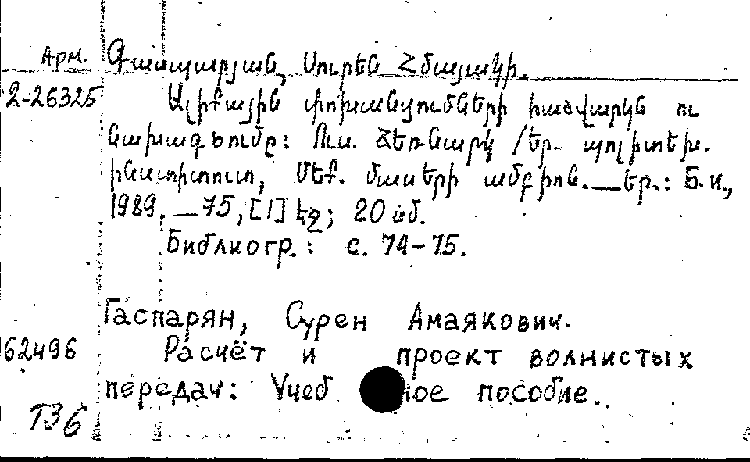 Арм. Գասպարյան, Սուրեն Հմայակի.
2-26325 Ալիքային փոխանցումների հաշվարկն ու
նախագծումը: Ուս. ձեռնարկ /Եր. պոլիտեխ.
ինստիտուտ, Մեք. մասերի ամբիոն.—Եր.: Б.и.,
1989.—75,[1] էջ; 20 սմ.
Библиогр.: с. 74-75.
Гаспарян, Сурен Амаякович.
62496 Расчёт и проект волнистых
передач: Учеб ное пособие.
Т36